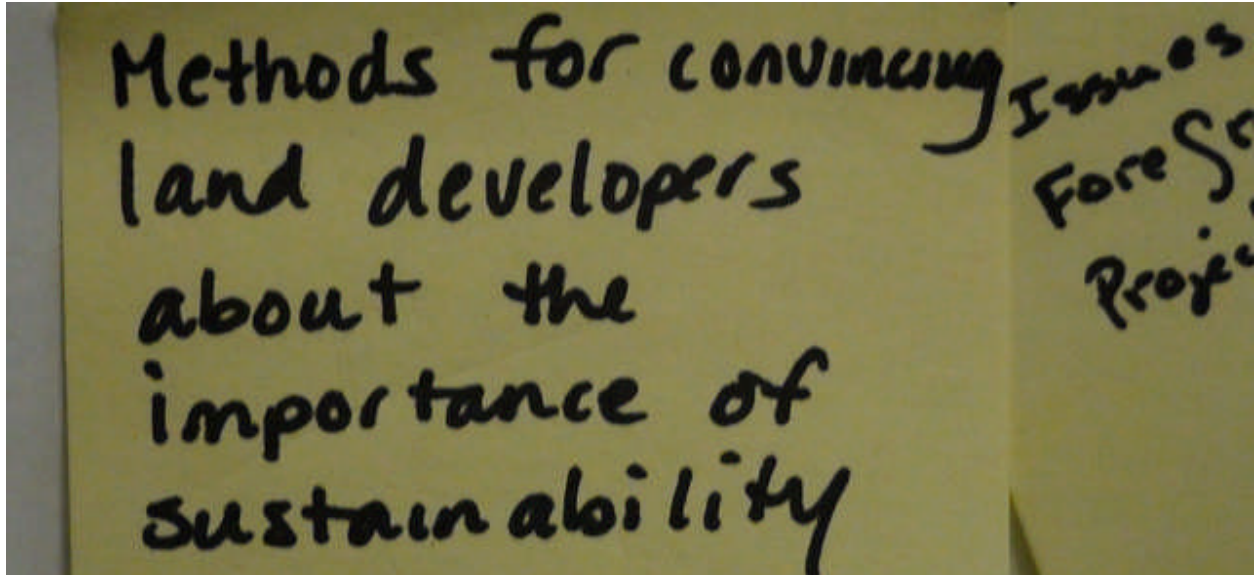 Methods for convincing
land developers
about the
importance of
sustainability
Issues